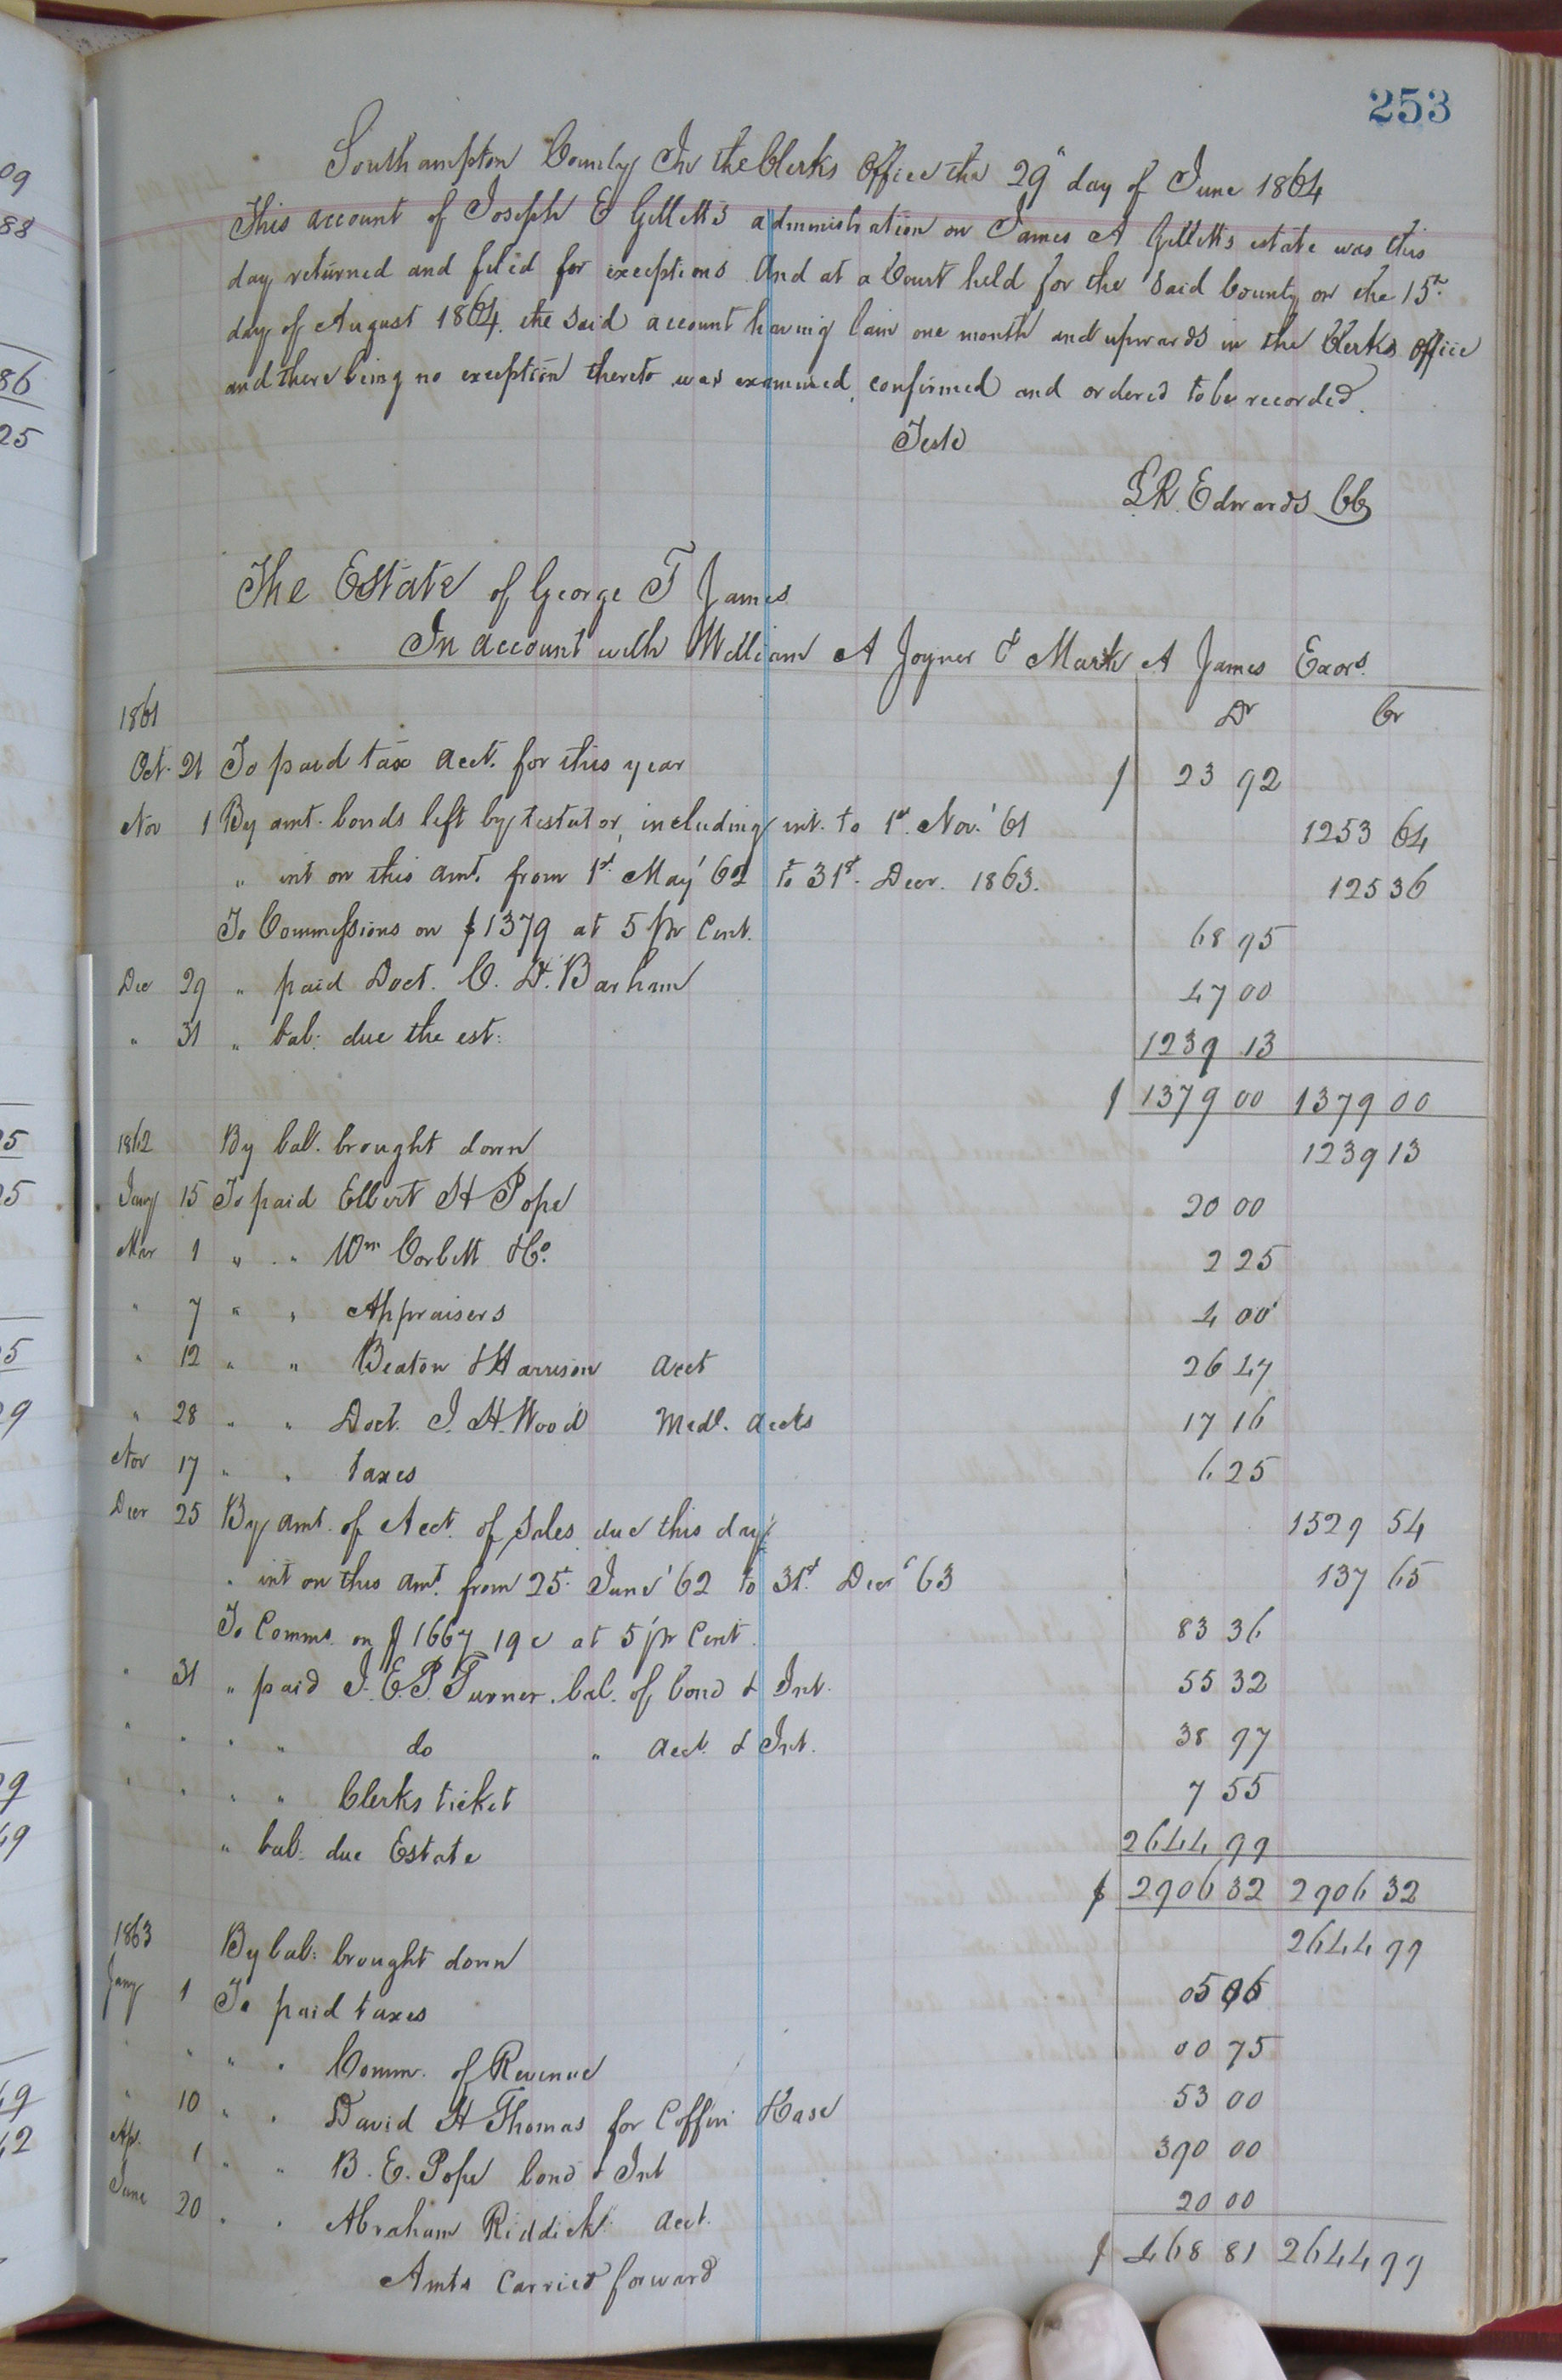 253
Southampton County In the Clerks Office the 29" day of June 1864
This account of Joseph E Gilletts administration on James A Gilletts estate was this
day returned and filed for exceptions And at a Court held for the said County on the 15th
day of August 1864. the said account having lain one month and upwards in the Clerks office
and there being no exception thereto was examined, confirmed and ordered to be recorded.
Teste
L.R. Edwards CC
The Estate of George T James
In account with William A Joyner & Mark A James Exors.
1861 Dr Cr
Oct. 21 To paid tax acct. for this year $ 23 92
Nov 1 By amt. bonds left by testator, including int. to 1st. Nov. '61 1253 64
" int on this amt. from 1st. May '62 to 31st. Decr. 1863. 125 36
To Commissions on $1379 at 5 pr Cent. 68 95
Dec 29 " paid Doct. C. D. Barham 47 00
" 31 " bal: due the est: 1239 13
$ 1379 00 1379 00
1862 By bal. brought down 1239 13
Jany 15 To paid Elbert H Pope 20 00
Mar 1 " " Wm Corbitt & Co. 2 25
" 7 " " Appraisers 4 00
" 12 " " Beaton & Harrison acct 26 47
" 28 " " Doct. J. H. Wood Medl. accts 17 16
Nov 17 " " taxes 6 25
Decr 25 By amt. of Acct. of Sales due this day 1529 54
" int on this amt. from 25th June '62 to 31st. Decr '63 137 65
To Comms. on $1667 19c at 5 pr Cent. 83 36
" 31 " paid J. E. P. Turner. bal. of bond & Int. 55 32
" " " " do " acct. & Int. 38 97
" " " " Clerks ticket 7 55
" bal. due Estate 2644 99
$ 2906 32 2906 32
1863 By bal: brought down 2644 99
Jany 1 To paid taxes 05 06
" " " " Comm. of Revenue 00 75
" 10 " " David H Thomas for Coffin & Case 53 00
Ap. 1 " " B. E. Pope bond & Int 390 00
June 20 " " Abraham Riddick acct. 20 00
Amts carried forward $ 468 81 2644 99
09
88
86
25
5
25
5
9
9
49
49
42